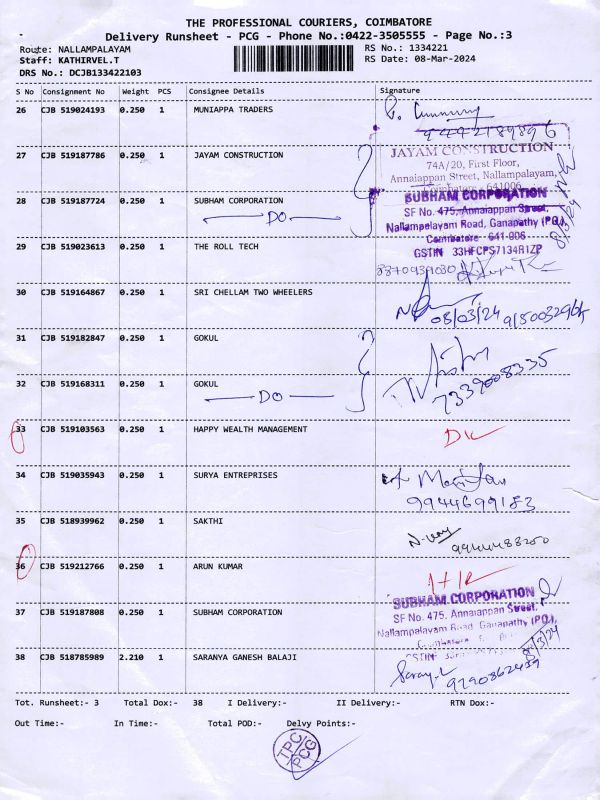 THE PROFESSIONAL COURIERS, COIMBATORE
Delivery Runsheet - PCG - Phone No.:0422-3505555 - Page No.:3
Route: NALLAMPALAYAM RS No.: 1334221
Staff: KATHIRVEL.T RS Date: 08-Mar-2024
DRS No.: DCJB133422103
S No Consignment No Weight PCS Consignee Details Signature
26 CJB 519024193 0.250 1 MUNIAPPA TRADERS
27 CJB 519187786 0.250 1 JAYAM CONSTRUCTION
JAYAM CONSTRUCTION
74A/20, First Floor,
Annaiappan Street, Nallampalayam,
Coimbatore - 641006
28 CJB 519187724 0.250 1 SUBHAM CORPORATION
DO
SUBHAM CORPORATION
SF No. 475, Annaiappan Street,
Nallampalayam Road, Ganapathy (PO.),
Coimbatore - 641 006
GSTIN 33HFCPS7134R1ZP
8/3/24
29 CJB 519023613 0.250 1 THE ROLL TECH
30 CJB 519164867 0.250 1 SRI CHELLAM TWO WHEELERS
08/03/24
31 CJB 519182847 0.250 1 GOKUL
32 CJB 519168311 0.250 1 GOKUL
DO
7339008335
33 CJB 519103563 0.250 1 HAPPY WEALTH MANAGEMENT
34 CJB 519035943 0.250 1 SURYA ENTREPRISES
9944699183
35 CJB 518939962 0.250 1 SAKTHI
36 CJB 519212766 0.250 1 ARUN KUMAR
37 CJB 519187808 0.250 1 SUBHAM CORPORATION
SUBHAM CORPORATION
SF No. 475, Annaiappan Street,
Nallampalayam Road, Ganapathy (PO.),
8/3/24
38 CJB 518785989 2.210 1 SARANYA GANESH BALAJI
Saray.L
9790862439
Tot. Runsheet:- 3 Total Dox:- 38 I Delivery:- II Delivery:- RTN Dox:-
Out Time:- In Time:- Total POD:- Delvy Points:-
TPC
PCG